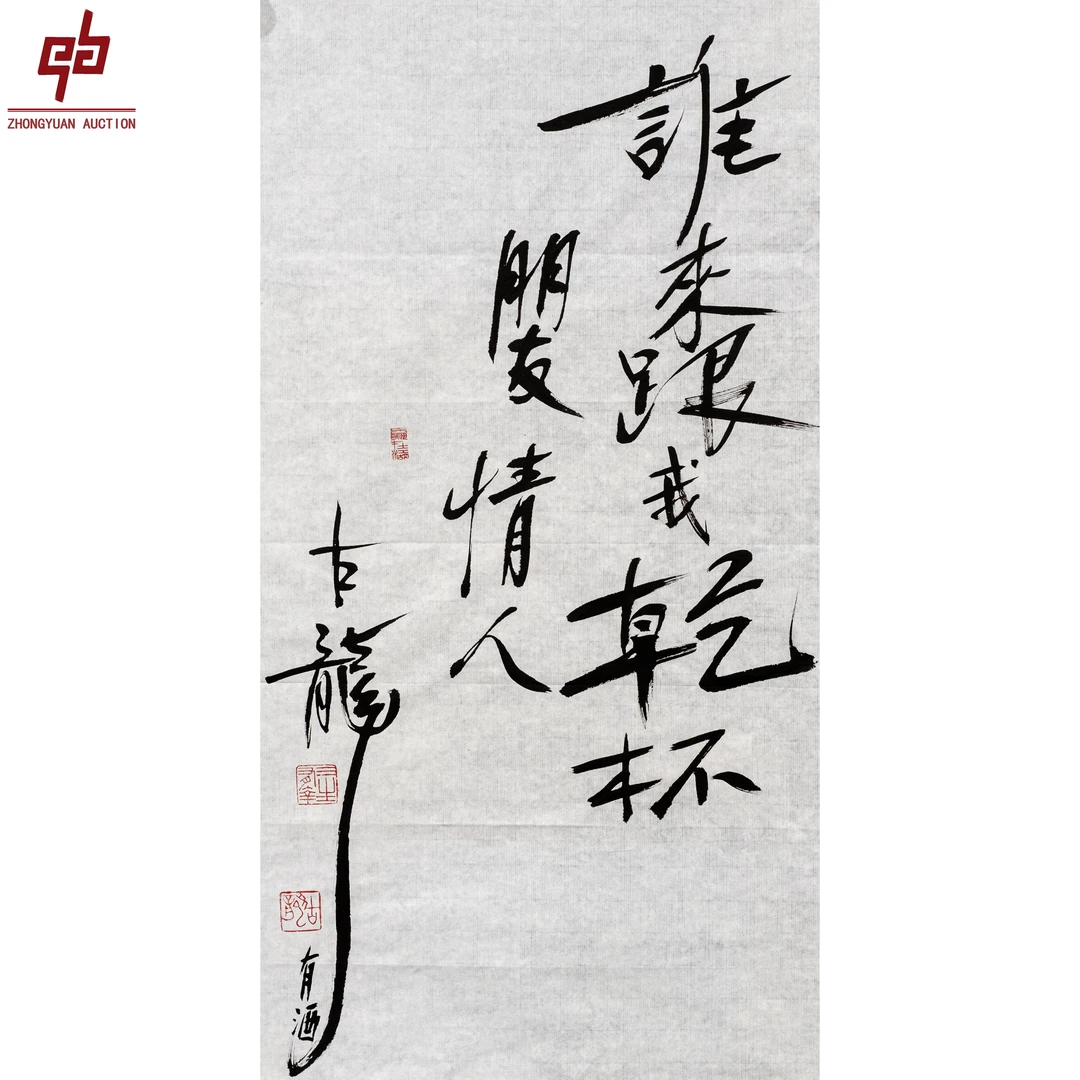 誰來跟我乾杯
朋友情人
古龍
有酒
ZHONGYUAN AUCTION